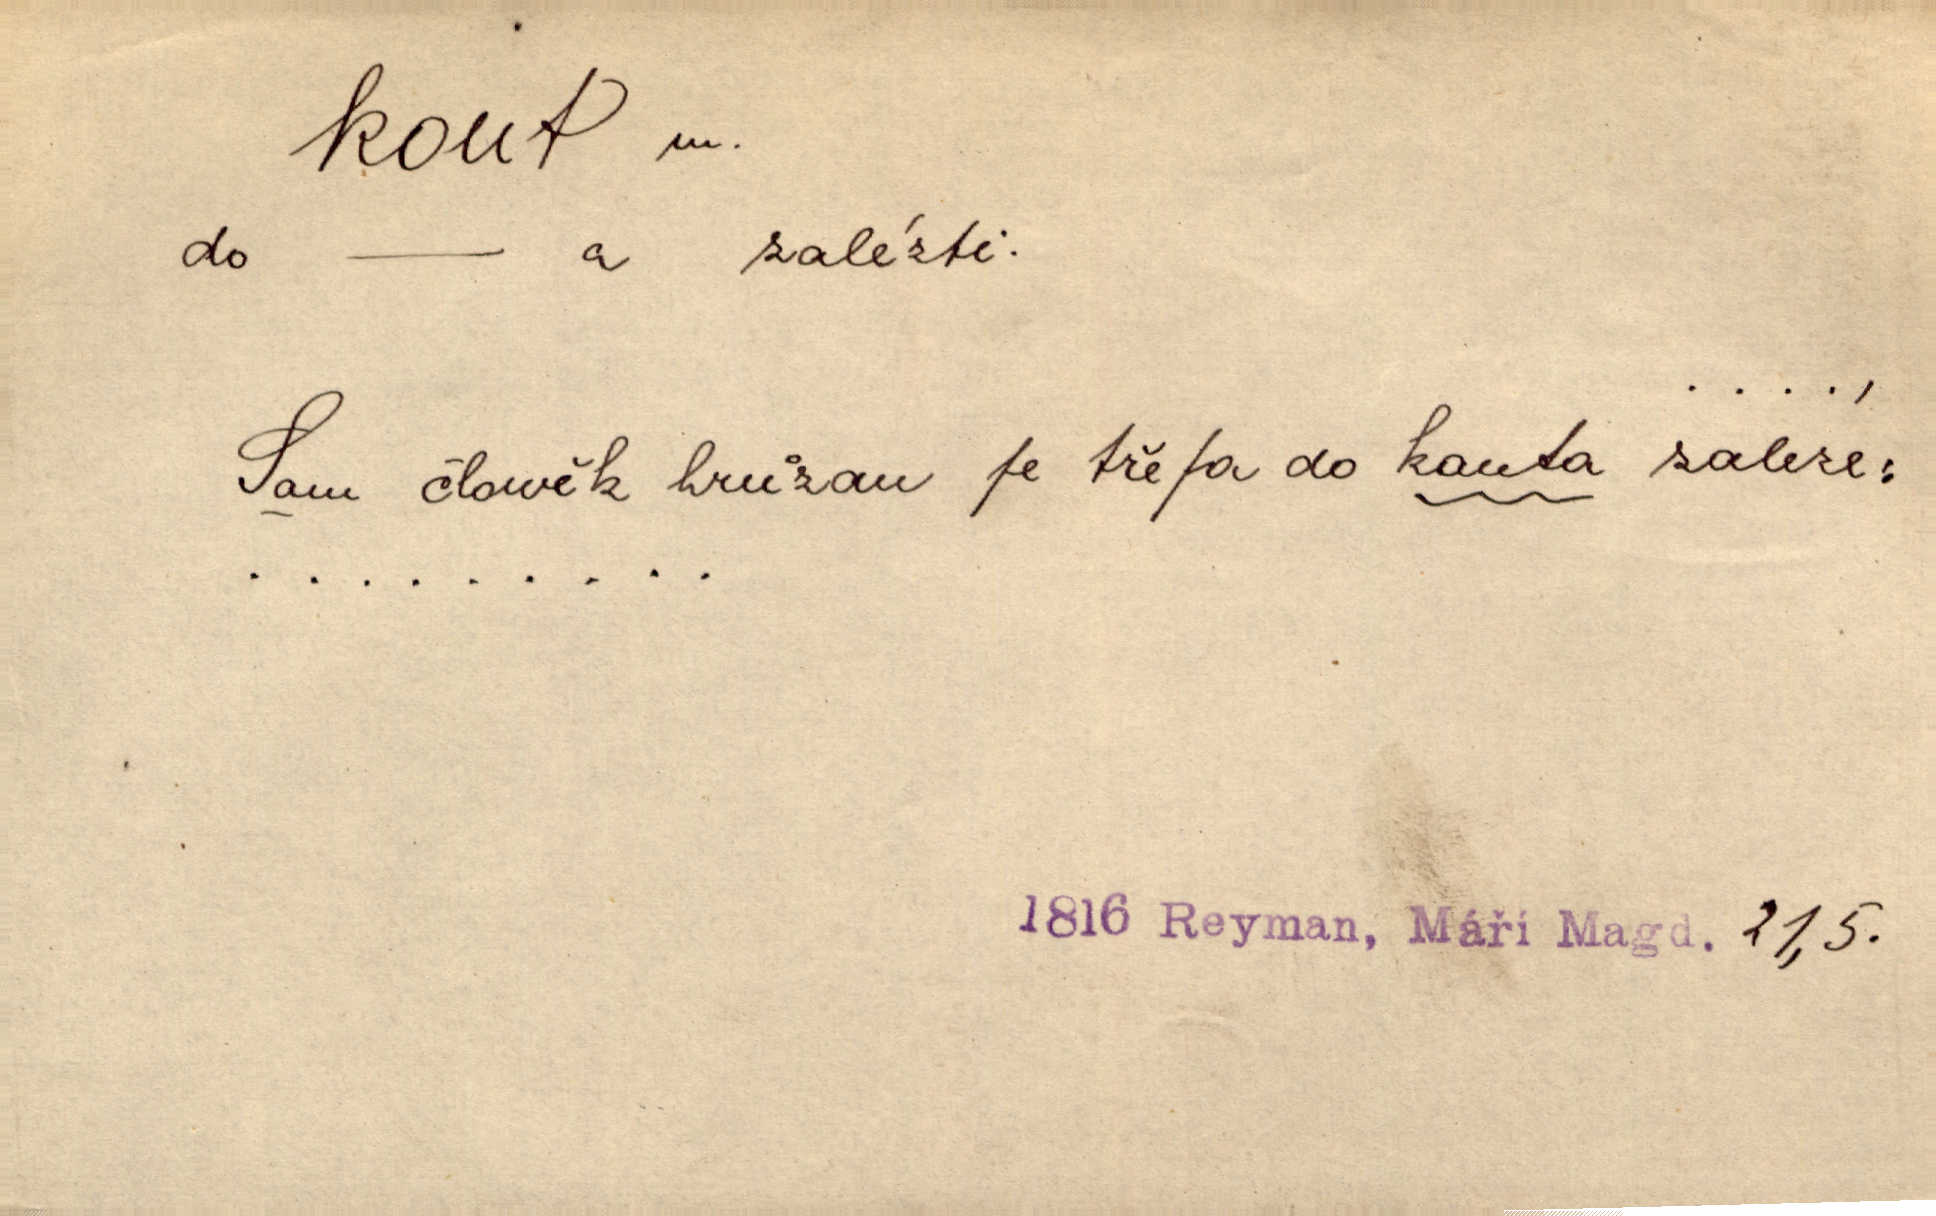 kout m.
do —— a zalézti.
. . . . ,
Sam člowěk hrůzau ſe třeſa do kauta zaleze:
. . . . . . . . .
1816 Reyman, Máří Magd. 21,5.